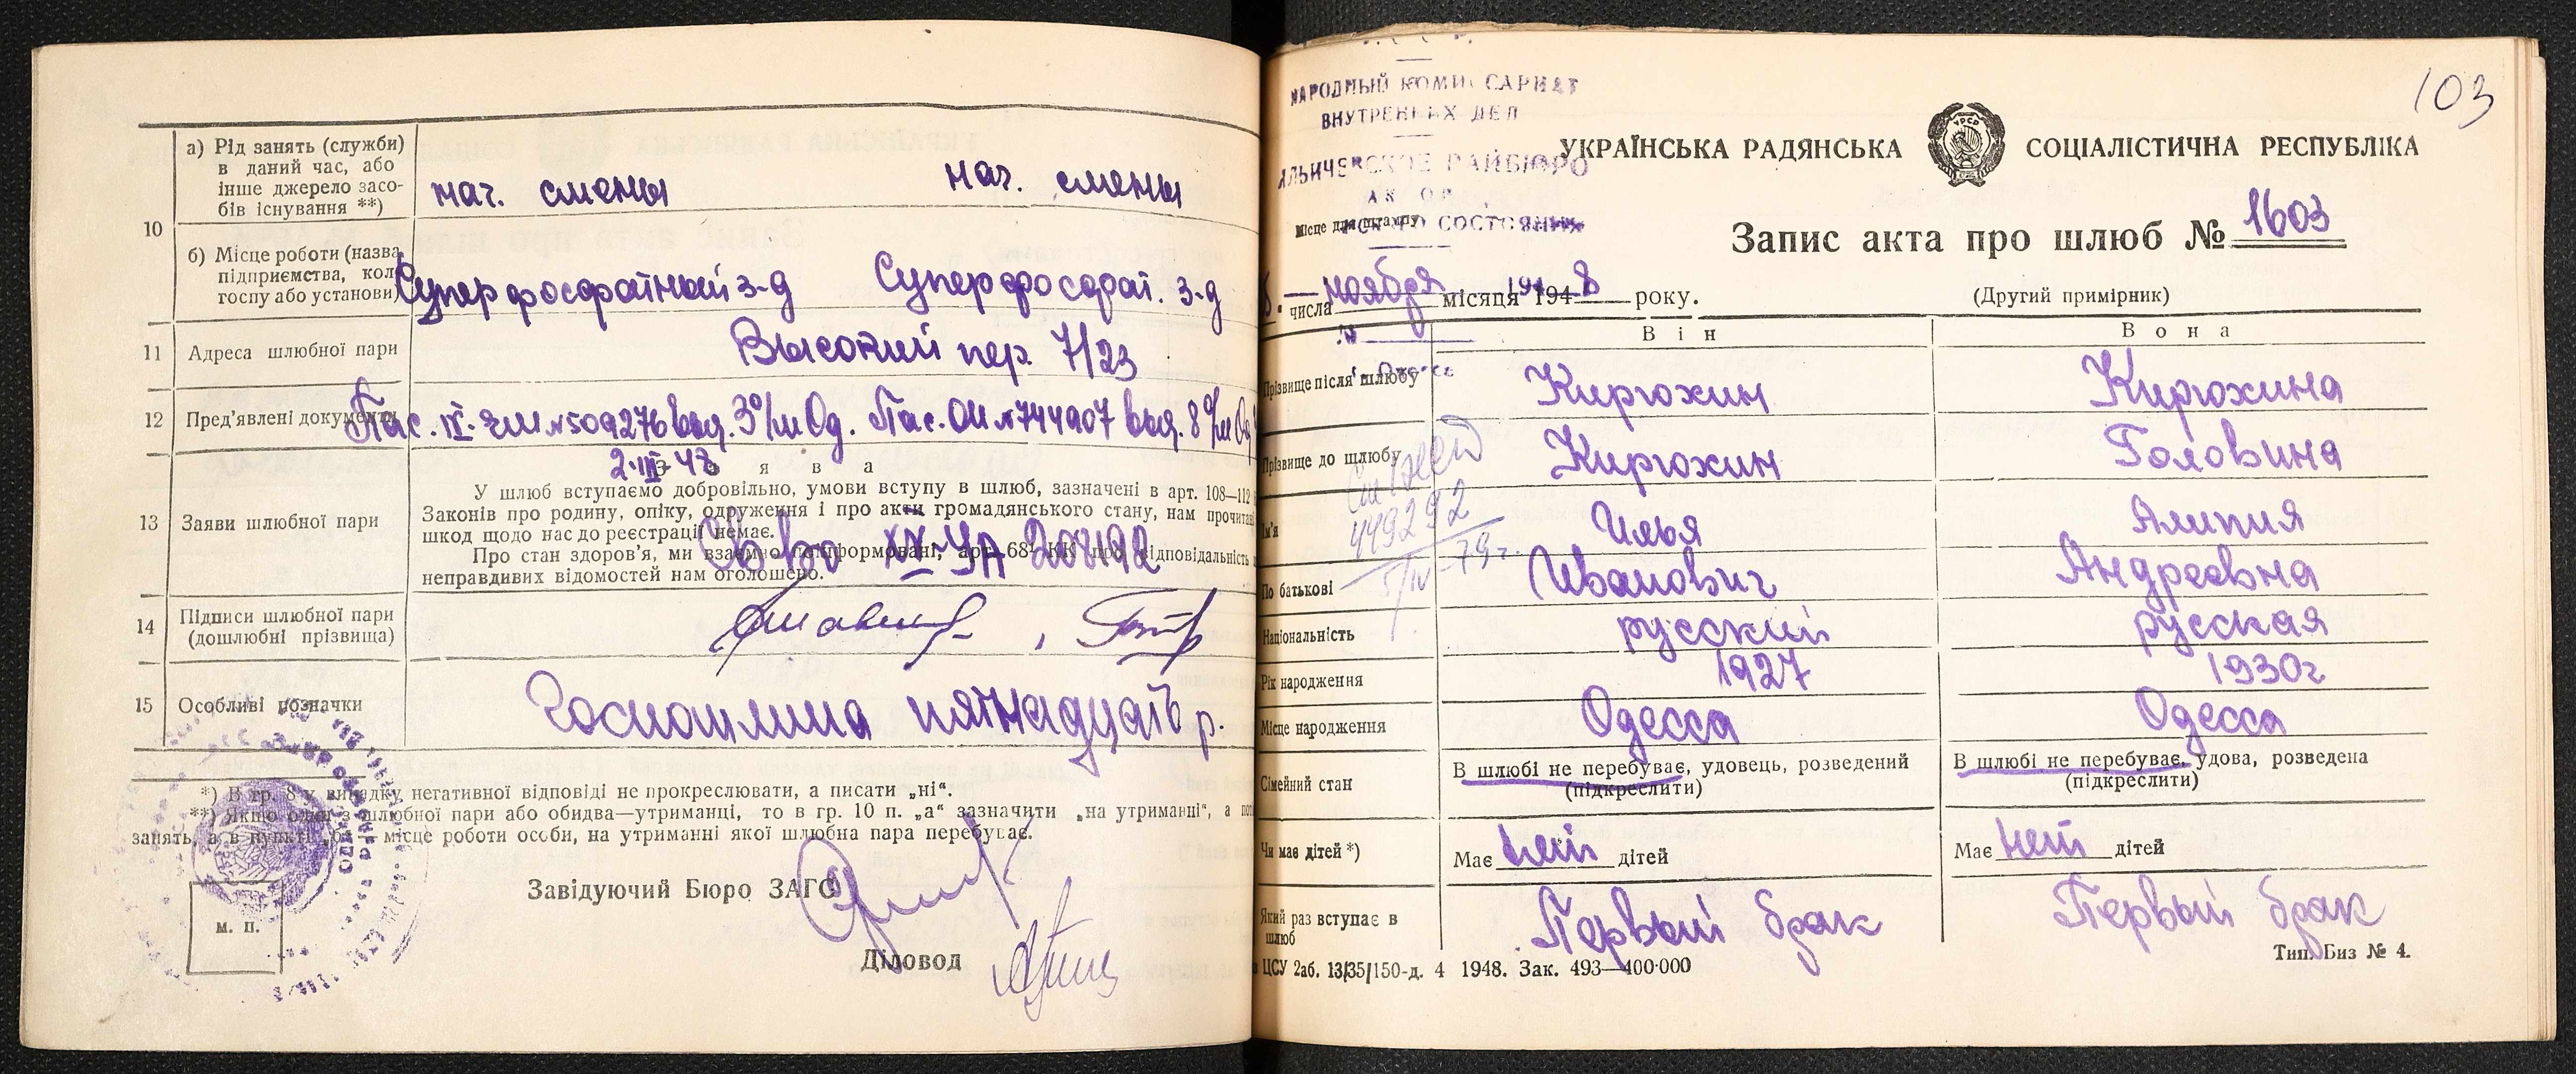 10
а) Рід занять (служби)
в даний час, або
інше джерело засо-
бів існування **)
нач. смены
нач. смены
б) Місце роботи (назва
підприємства, кол-
госпу або установи)
Суперфосфатный з-д
Суперфосфат. з-д
11
Адреса шлюбної пари
Высокий пер. 7/23
12
Пред'явлені документи
Пас. IX-ЕШ №509276 выд. 3 о/м Од.
Пас. ОИ №744907 выд. 8 о/м Од
2-III-48
З а я в а
13
Заяви шлюбної пари
У шлюб вступаємо добровільно, умови вступу в шлюб, зазначені в арт. 108—112
Законів про родину, опіку, одруження і про акти громадянського стану, нам прочита
шкод щодо нас до реєстрації немає.
Про стан здоров'я, ми взаємно поінформовані, арт. 68¹ КК про відповідальність
неправдивих відомостей нам оголошено.
Св-во XX-УА 208192
14
Підписи шлюбної пари
(дошлюбні прізвища)
15
Особливі позначки
Госпошлина пятнадцать р.
*) В гр. 8 у випадку негативної відповіді не прокреслювати, а писати „ні“.
**) Якщо один з шлюбної пари або обидва—утриманці, то в гр. 10 п. „а“ зазначити „на утриманні“, а пот
занять, а в пункті „б“ — місце роботи особи, на утриманні якої шлюбна пара перебуває.
Завідуючий Бюро ЗАГС
М. П.
Діловод
103
НАРОДНЫЙ КОМИССАРИАТ
ВНУТРЕННИХ ДЕЛ
ИЛЬИЧЕВСКОЕ РАЙБЮРО
СОСТОЯНИЯ
Місце для штампу
УКРАЇНСЬКА РАДЯНСЬКА
УРСР
СОЦІАЛІСТИЧНА РЕСПУБЛІКА
Запис акта про шлюб № 1603
числа ноября місяця 1948 року.
(Другий примірник)
№
Він
Вона
Прізвище після шлюбу
Кирюхин
Кирюхина
Прізвище до шлюбу
Кирюхин
Головина
449292
79г.
Ім'я
Илья
Алипия
По батькові
Иванович
Андреевна
Національність
русский
русская
Рік народження
1927
1930г
Місце народження
Одесса
Одесса
Сімейний стан
В шлюбі не перебуває, удовець, розведений
(підкреслити)
В шлюбі не перебуває, удова, розведена
(підкреслити)
Чи має дітей *)
Має нет дітей
Має нет дітей
Який раз вступає в
шлюб
Первый брак
Первый брак
ЦСУ 2аб. 13/35/150-д. 4 1948. Зак. 493—400·000
Тип. Биз № 4.